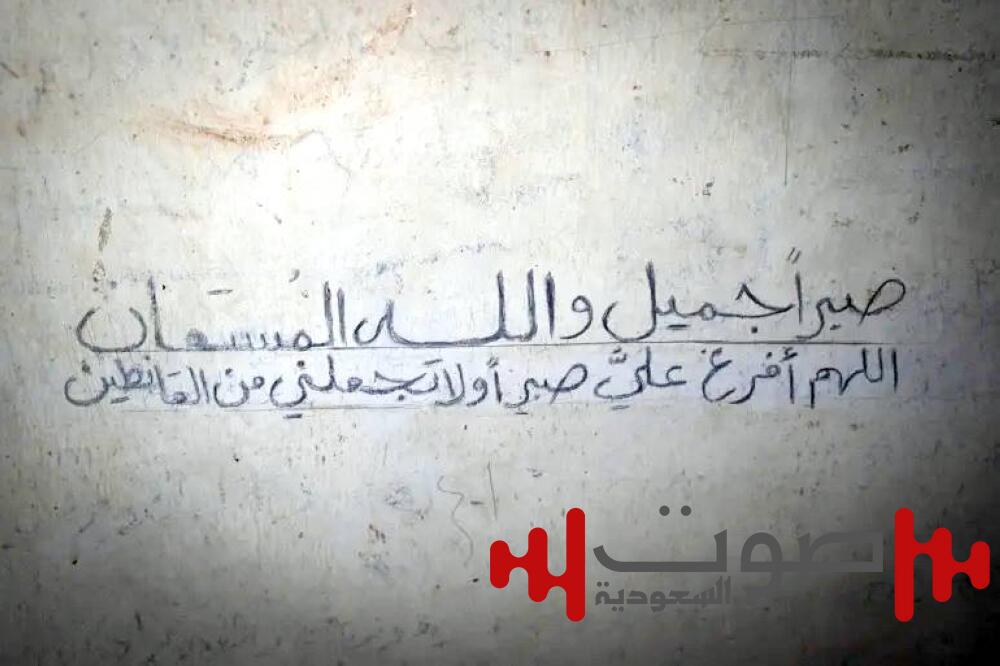 صبراً جميل والله المُستعان
اللهم أفرغ عليَّ صبراً ولا تجعلني من القانطين
صوت
السعودية